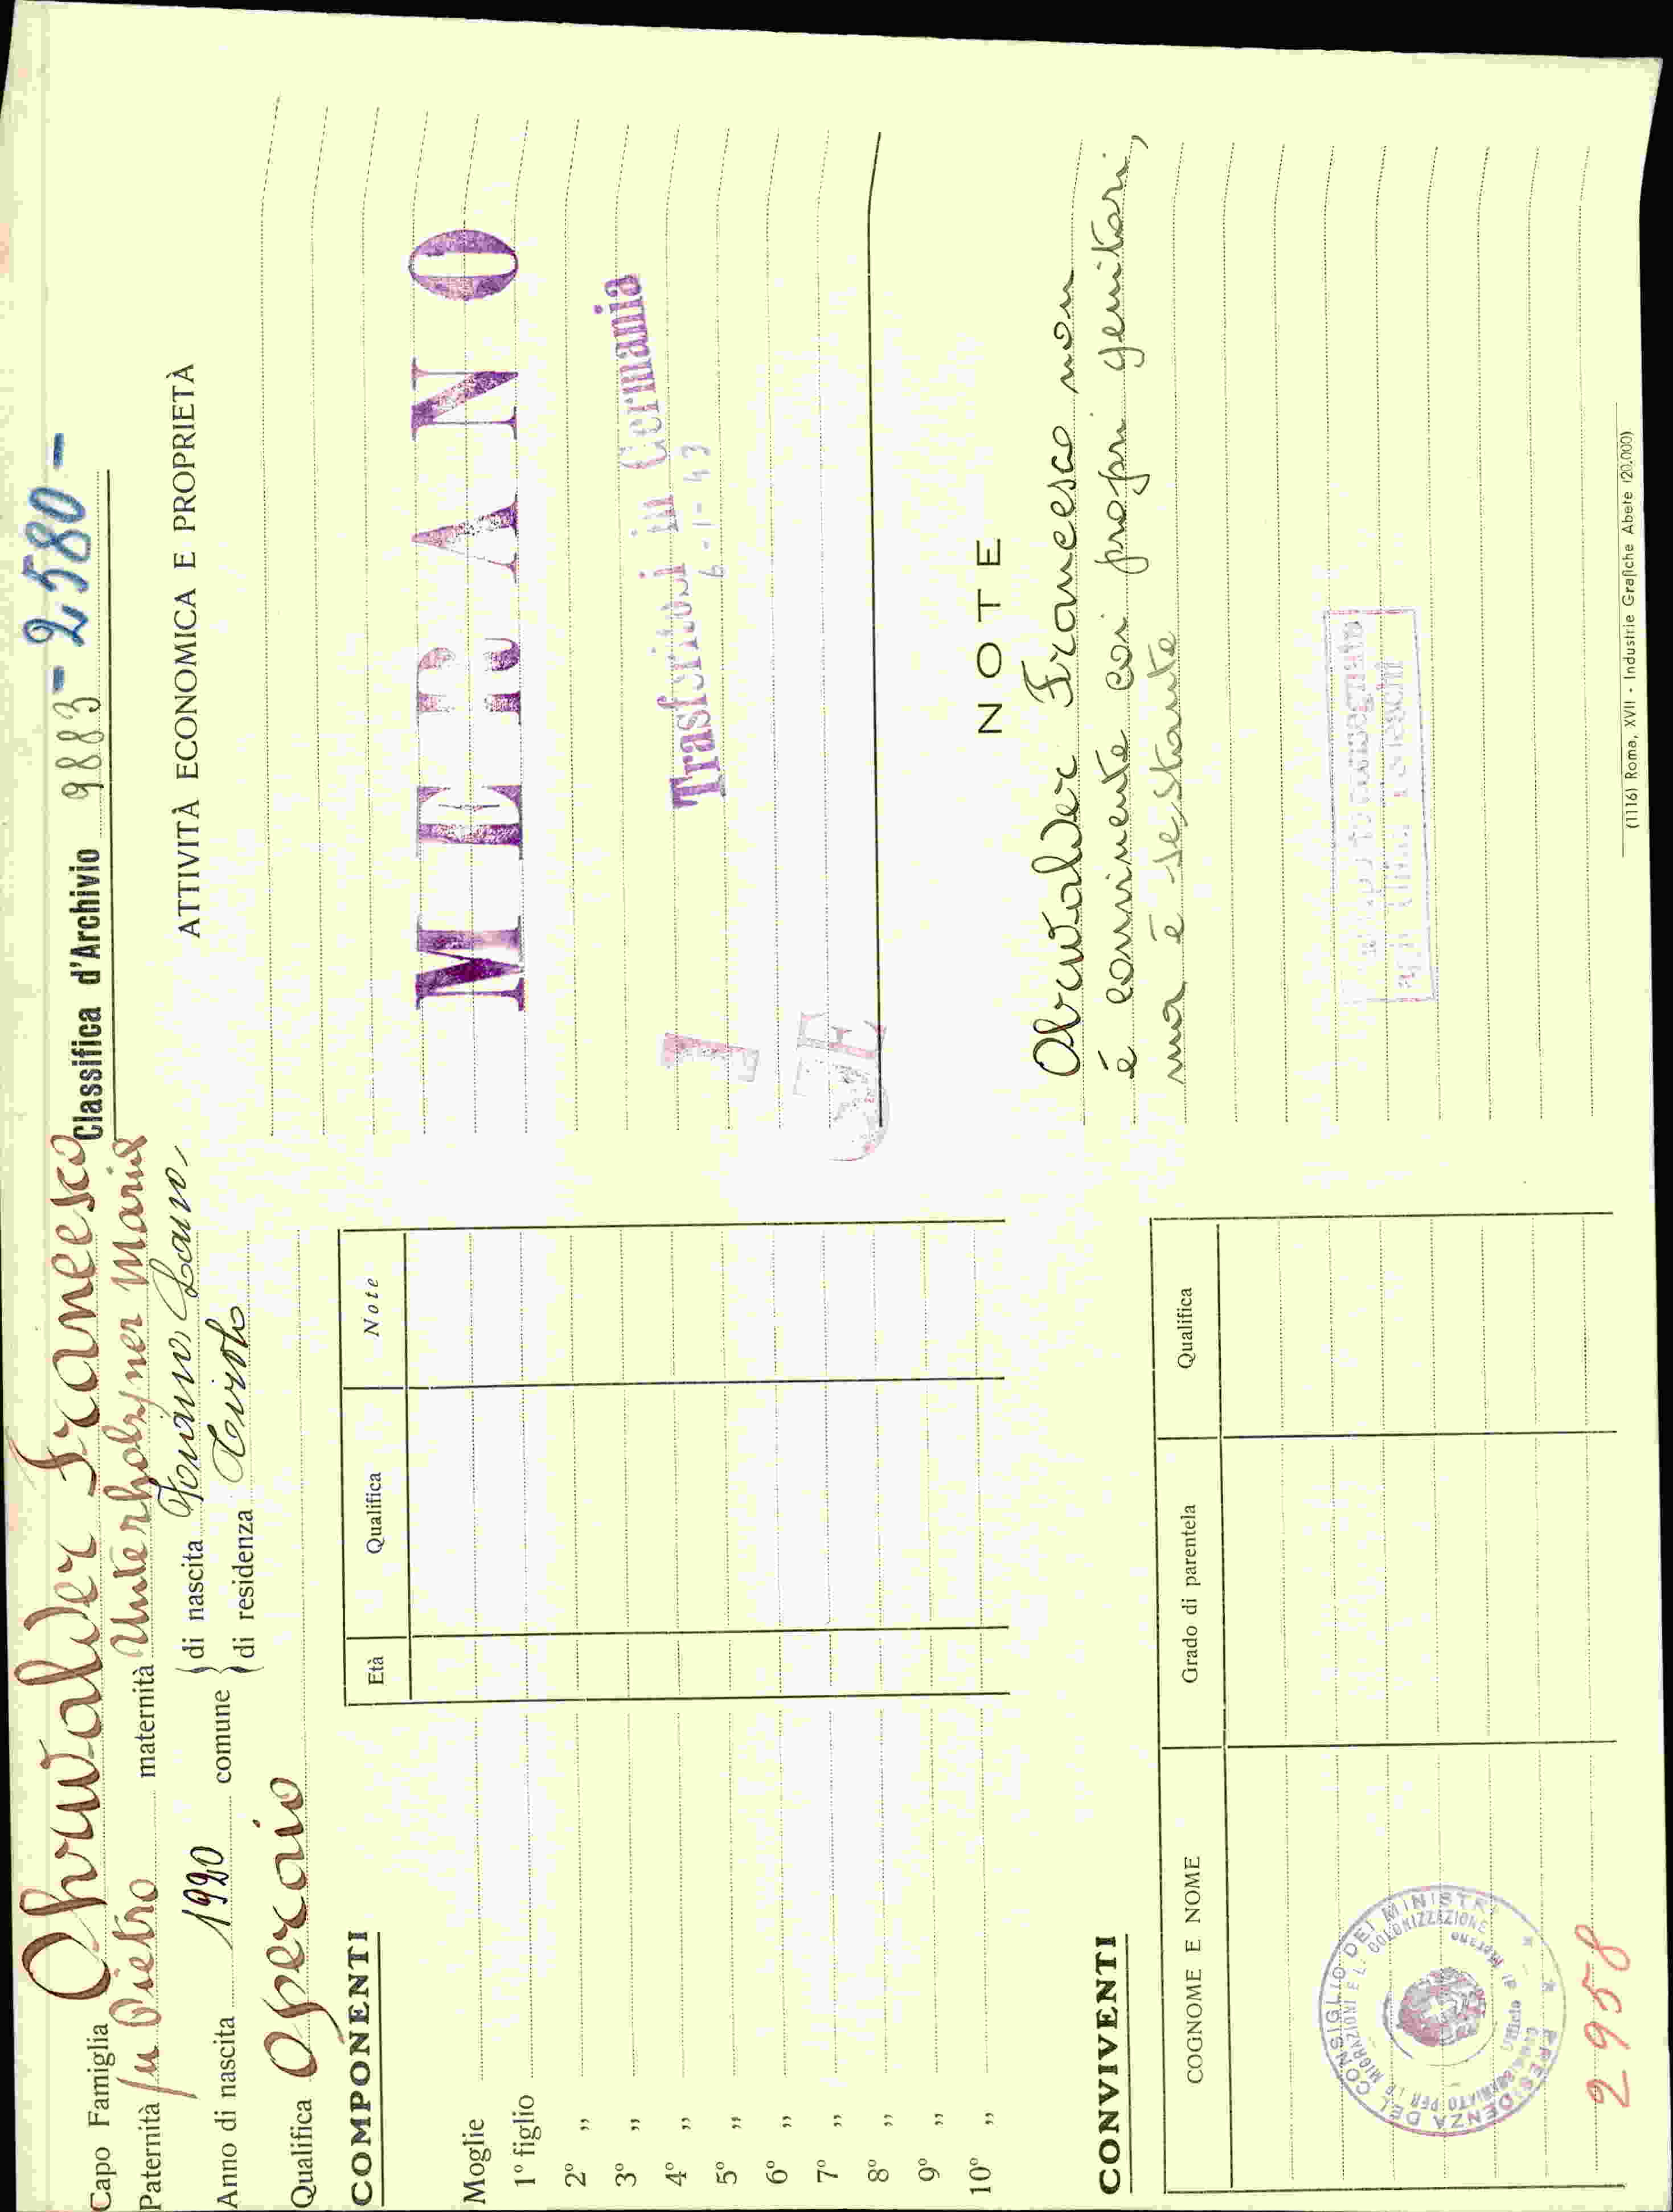 Capo Famiglia Obrwalder Francesco
Classifica d'Archivio 9883 - 2580 -
Paternità fu Pietro maternità Unterholzner Maria
Anno di nascita 1920 comune di nascita Foiano Lana
di residenza Tirolo
Qualifica Operaio
COMPONENTI
Età Qualifica Note
Moglie
1º figlio
2º „
3º „
4º „
5º „
6º „
7º „
8º „
9º „
10º „
CONVIVENTI
COGNOME E NOME Grado di parentela Qualifica
PRESIDENZA DEL CONSIGLIO DEI MINISTRI
COMMISSARIATO PER LE MIGRAZIONI E L. COLONIZZAZIONE
Ufficio di Merano
2958
ATTIVITÀ ECONOMICA E PROPRIETÀ
MERANO
Trasferitosi in Germania
6-1-43
NOTE
Obrwalder Francesco non
è convivente coi propri genitori,
ma è a se stante
(1116) Roma, XVII - Industrie Grafiche Abete (20.000)